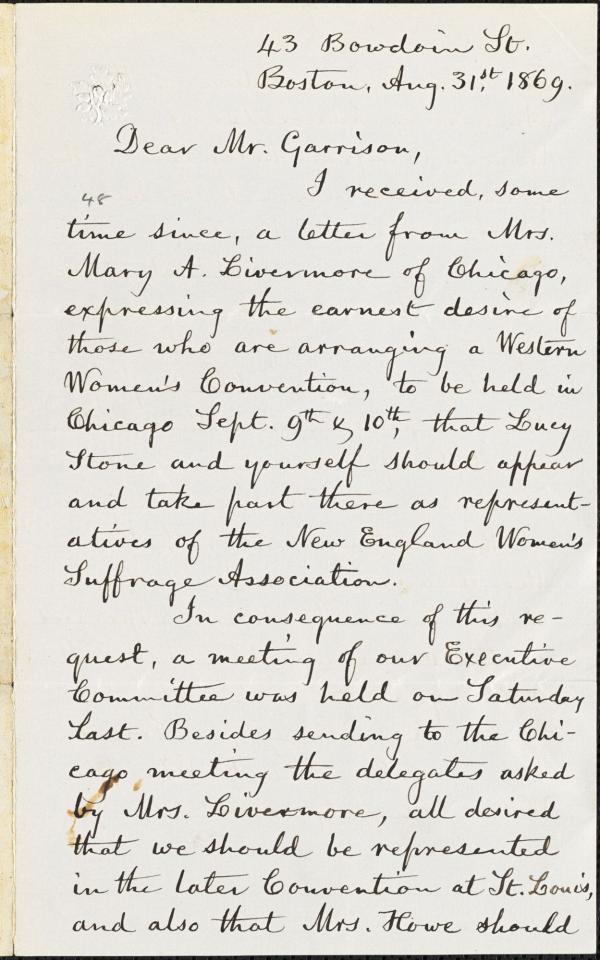 43 Bowdoin St.
Boston, Aug. 31st, 1869.
Dear Mr. Garrison,
I received, some
48
time since, a letter from Mrs.
Mary A. Livermore of Chicago,
expressing the earnest desire of
those who are arranging a Western
Women's Convention, to be held in
Chicago Sept. 9th & 10th, that Lucy
Stone and yourself should appear
and take part there as represent-
atives of the New England Women's
Suffrage Association.
In consequence of this re-
quest, a meeting of our Executive
Committee was held on Saturday
last. Besides sending to the Chi-
cago meeting the delegates asked
by Mrs. Livermore, all desired
that we should be represented
in the later Convention at St. Louis,
and also that Mrs. Howe should